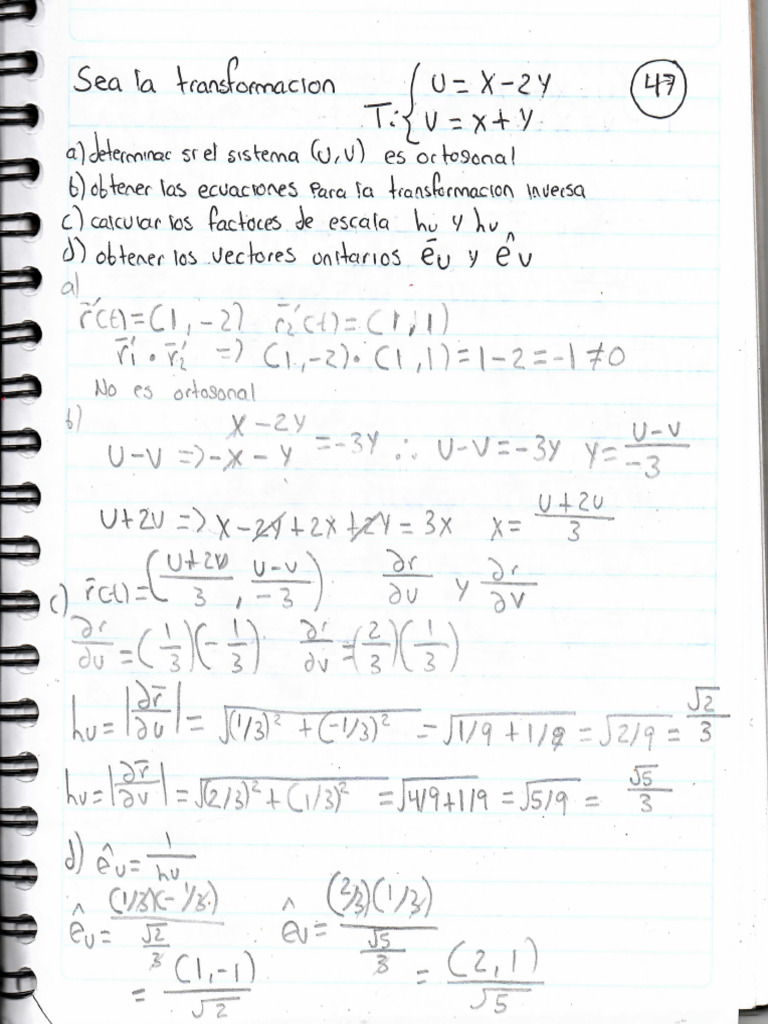 Sea la transformacion T: { U = X - 2Y (47)
V = X + Y
a) determinar si el sistema (U,V) es ortogonal
b) obtener las ecuaciones para la transformacion inversa
c) calcular los factores de escala hu y hv
d) obtener los vectores unitarios ēu y êv
a)
r̄'(t) = (1, -2) r̄2'(t) = (1, 1)
r̄1' · r̄2' => (1, -2) · (1, 1) = 1 - 2 = -1 ≠ 0
No es ortogonal
b)
X - 2Y
U - V => -X - Y = -3Y ∴ U - V = -3Y Y = U - V / -3
U + 2V => X - 2Y + 2X + 2Y = 3X X = U + 2V / 3
c) r̄(t) = (U + 2V / 3, U - V / -3) ∂r/∂U y ∂r/∂V
∂r/∂U = (1/3)(-1/3) ∂r/∂V = (2/3)(1/3)
hu = |∂r̄/∂U| = √(1/3)² + (-1/3)² = √1/9 + 1/9 = √2/9 = √2/3
hv = |∂r̄/∂V| = √(2/3)² + (1/3)² = √4/9 + 1/9 = √5/9 = √5/3
d) êu = 1/hu
êu = (1/3)(-1/3) / √2/3 êv = (2/3)(1/3) / √5/3
= (1, -1) / √2 = (2, 1) / √5